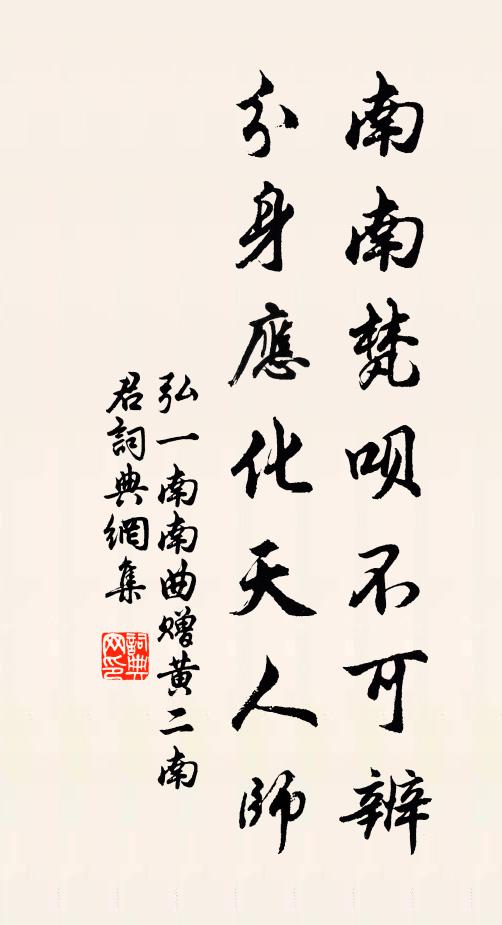 南南梵唄不可辨
分身應化天人師
弘一南南曲贈黄二南
君詞典網集
詞典
网印